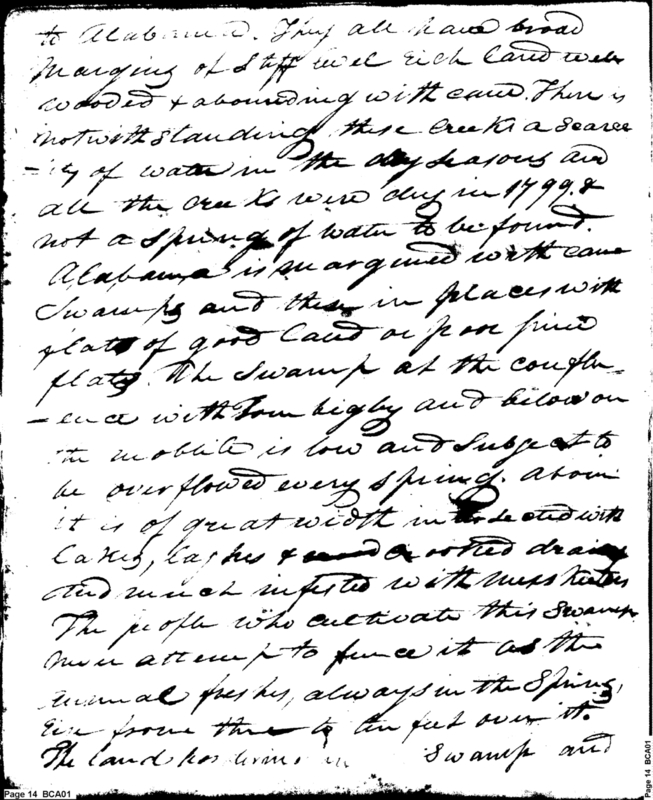 to Alabama. They all have broad
margins of stiff level rich land well
wooded & abounding with cane. There is
notwithstanding these Creeks a scarce
-ity of water in the dry seasons and
all the creeks were dry in 1799 &
not a spring of water to be found.
Alabama is margined with cane
Swamps and these in places with
flats of good land or poor pine
flats. The Swamp at the conflu-
-ence with Tombigby and below on
the mobile is low and Subject to
be overflowed every spring. Above
it is of great width intersected with
Lakes, slashes & crooked drains
and much infested with
The people who cultivate this Swamp
never attempt to fence it as the
annual freshes, always in the Spring,
rise from three to ten feet over it.
The lands bordering Swamp and
Page 14 BCA01
Page 14 BCA01